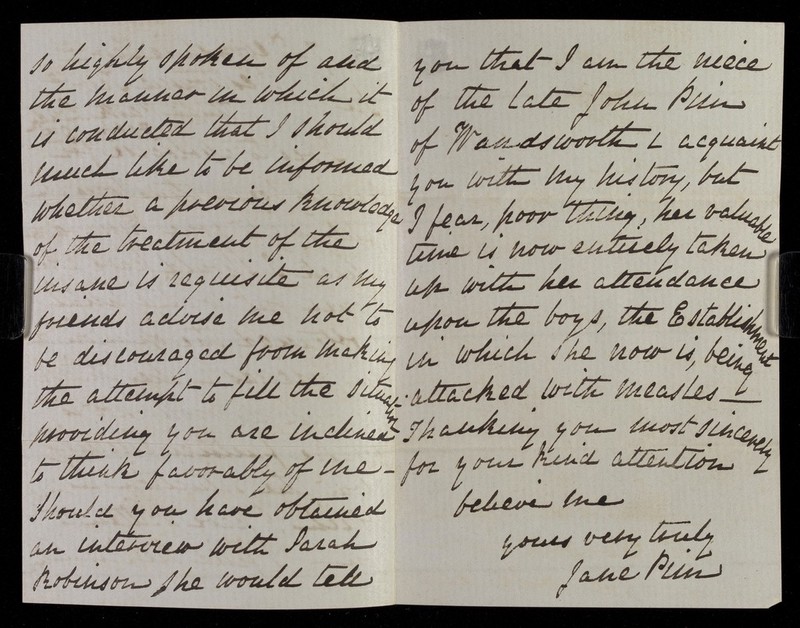 so highly spoken of and
the manner in which it
is conducted that I should
much like to be informed
whether a previous knowledge
of the treatment of the
insane is requisite as my
friends advise me not to
be discouraged from making
the attempt to fill the situation
providing you are inclined
to think favorably of me -
Should you have obtained
an interview with Sarah
Robinson she would tell
you that I am the niece
of the late John Pim
of Wandsworth & acquaint
you with my history, but
I fear, poor thing, her valuable
time is now entirely taken
up with her attendance
upon the boys, the Establishment
in which she now is, being
attacked with measles —
Thanking you most sincerely
for your kind attention
believe me
yours very truly
Jane Pim